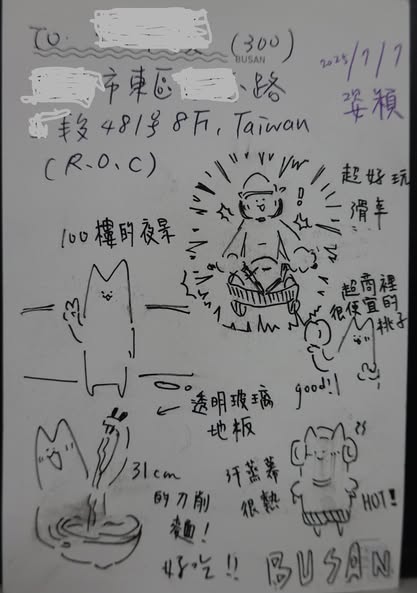 TO.
(300)
BUSAN
市東區
路
段481號8F, Taiwan
(R.O.C)
2025/7/7
姿穎
超好玩
滑車
100樓的夜景
超商裡
很便宜的
桃子
good!!
透明玻璃
地板
31cm
的刀削
麵!
好吃!!
汗蒸幕
很熱
HOT!
BUSAN